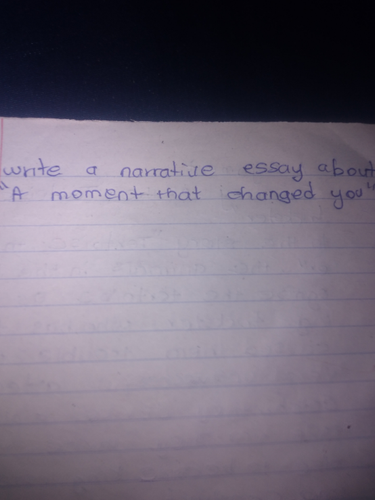 write a narrative essay about
"A moment that changed you"